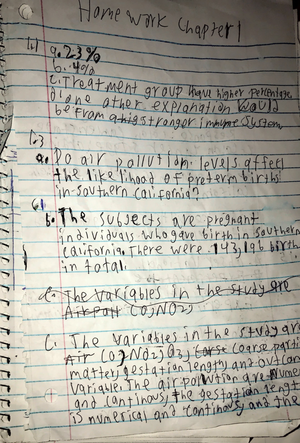 Homework Chapter 1
1.1 a. 23%
b. 4%
c. Treatment group have higher percentage
d. one other explanation would
be from a big stronger immune system
1.3
a. Do air pollution levels affect
the likelihood of preterm births
in southern California?
b. The subjects are pregnant
individuals who gave birth in southern
California. There were 143,196 births
in total.
c. The variables in the study are
Air poll CO, NO2,
c. The variables in the study are
Air CO, NO2, O3, Coarse coarse parti
matter, gestation length, and outcom
variable. The air pollution are nume
and continous, the gestation lengt
is numerical and continous, and the